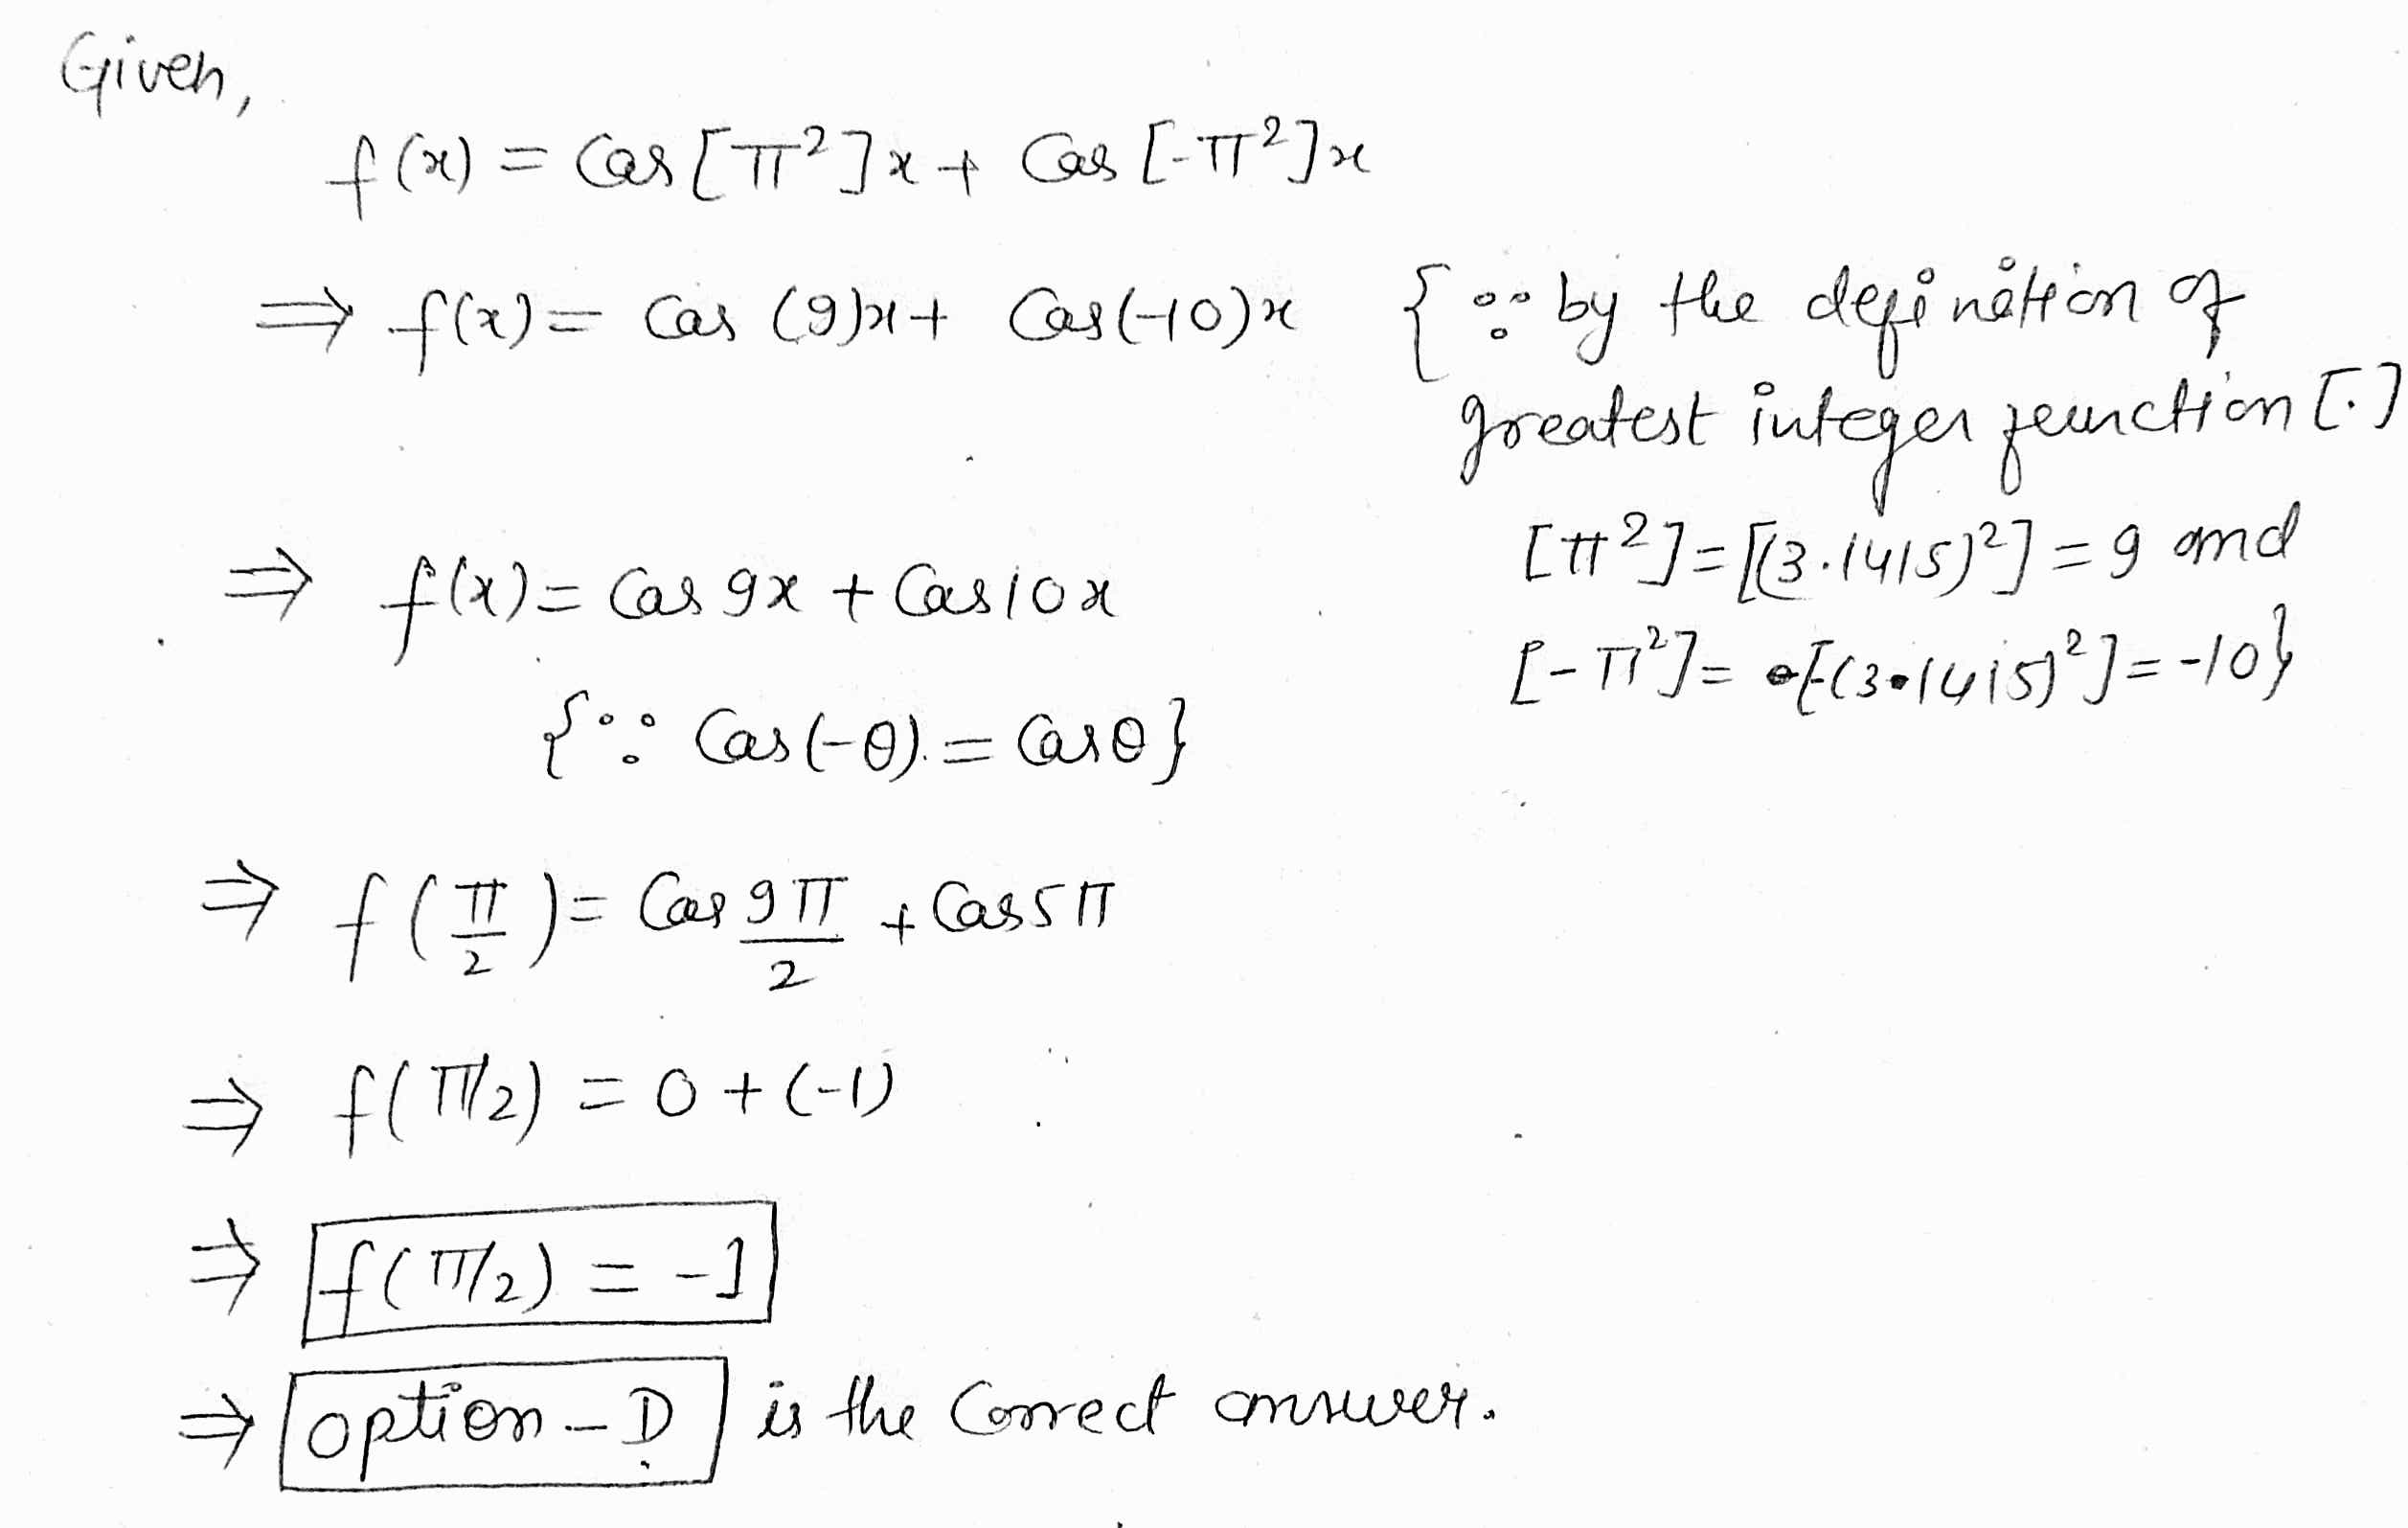 Given,
f(x) = Cos [π²]x + Cos [-π²]x
⇒ f(x) = Cos (9)x + Cos(-10)x {∵ by the definition of
greatest integer function [.]
[π²] = [(3.1415)²] = 9 and
⇒ f(x) = Cos 9x + Cos 10x
[-π²] = [-(3.1415)²] = -10}
{∵ Cos(-θ) = Cosθ}
⇒ f(π/2) = Cos 9π/2 + Cos 5π
⇒ f(π/2) = 0 + (-1)
⇒ f(π/2) = -1
⇒ option - D is the Correct answer.